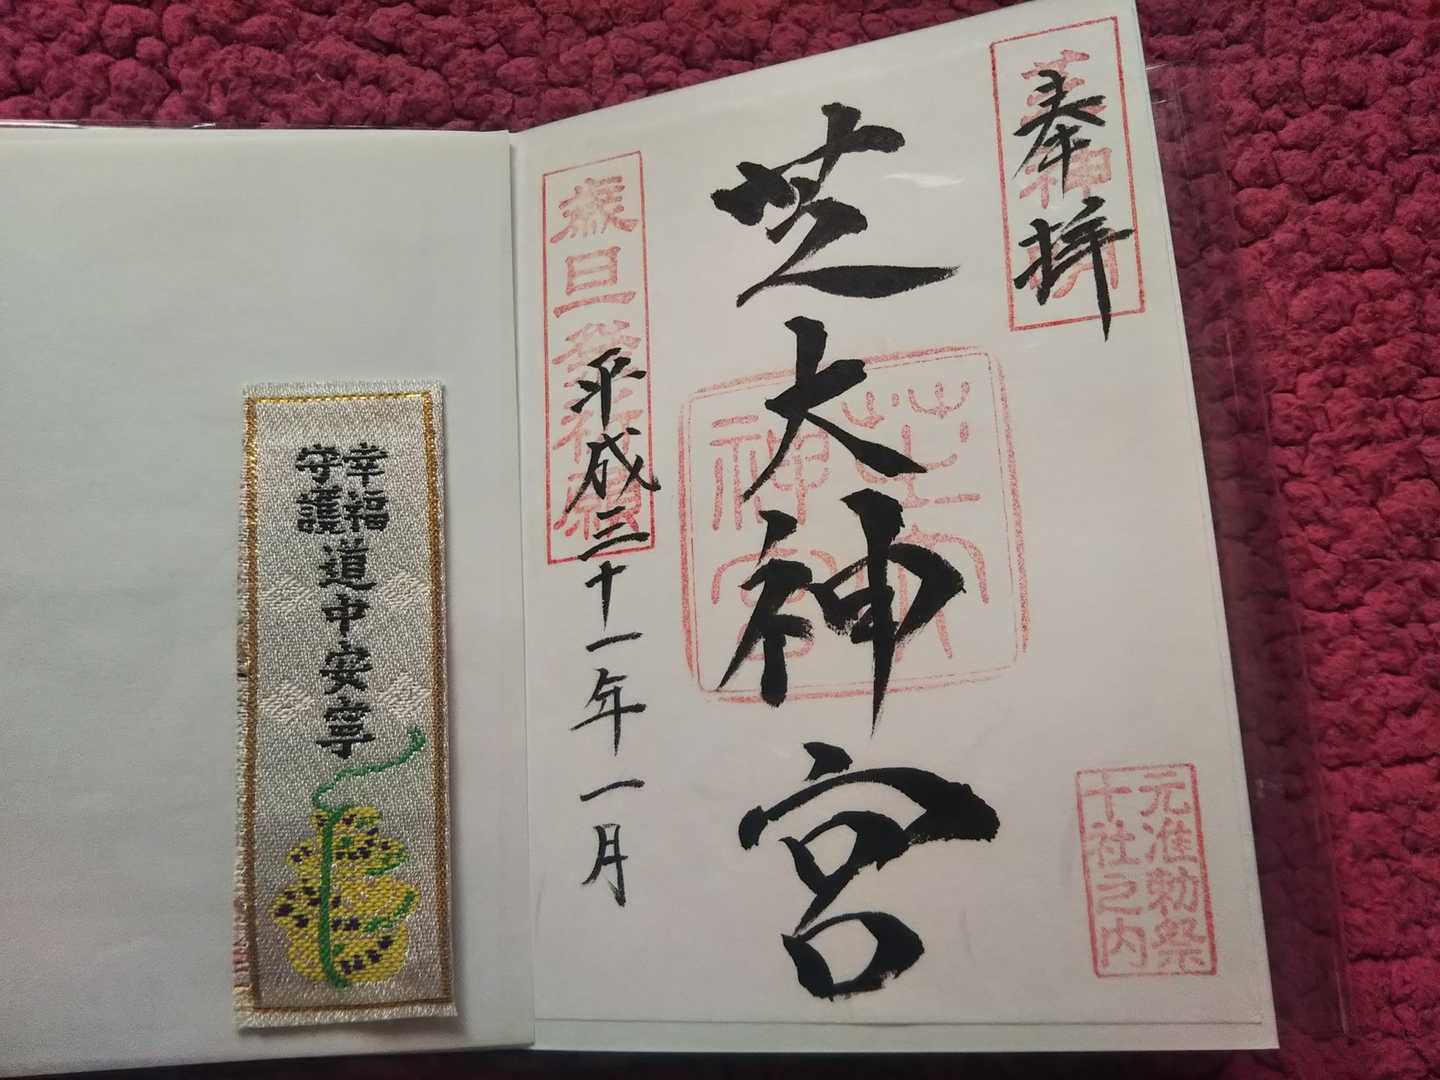 奉拝
芝神明
元准勅祭
十社之内
芝大神宮
芝大
神宮
歳旦
平成三十一年一月
幸福
守護
道中安寧